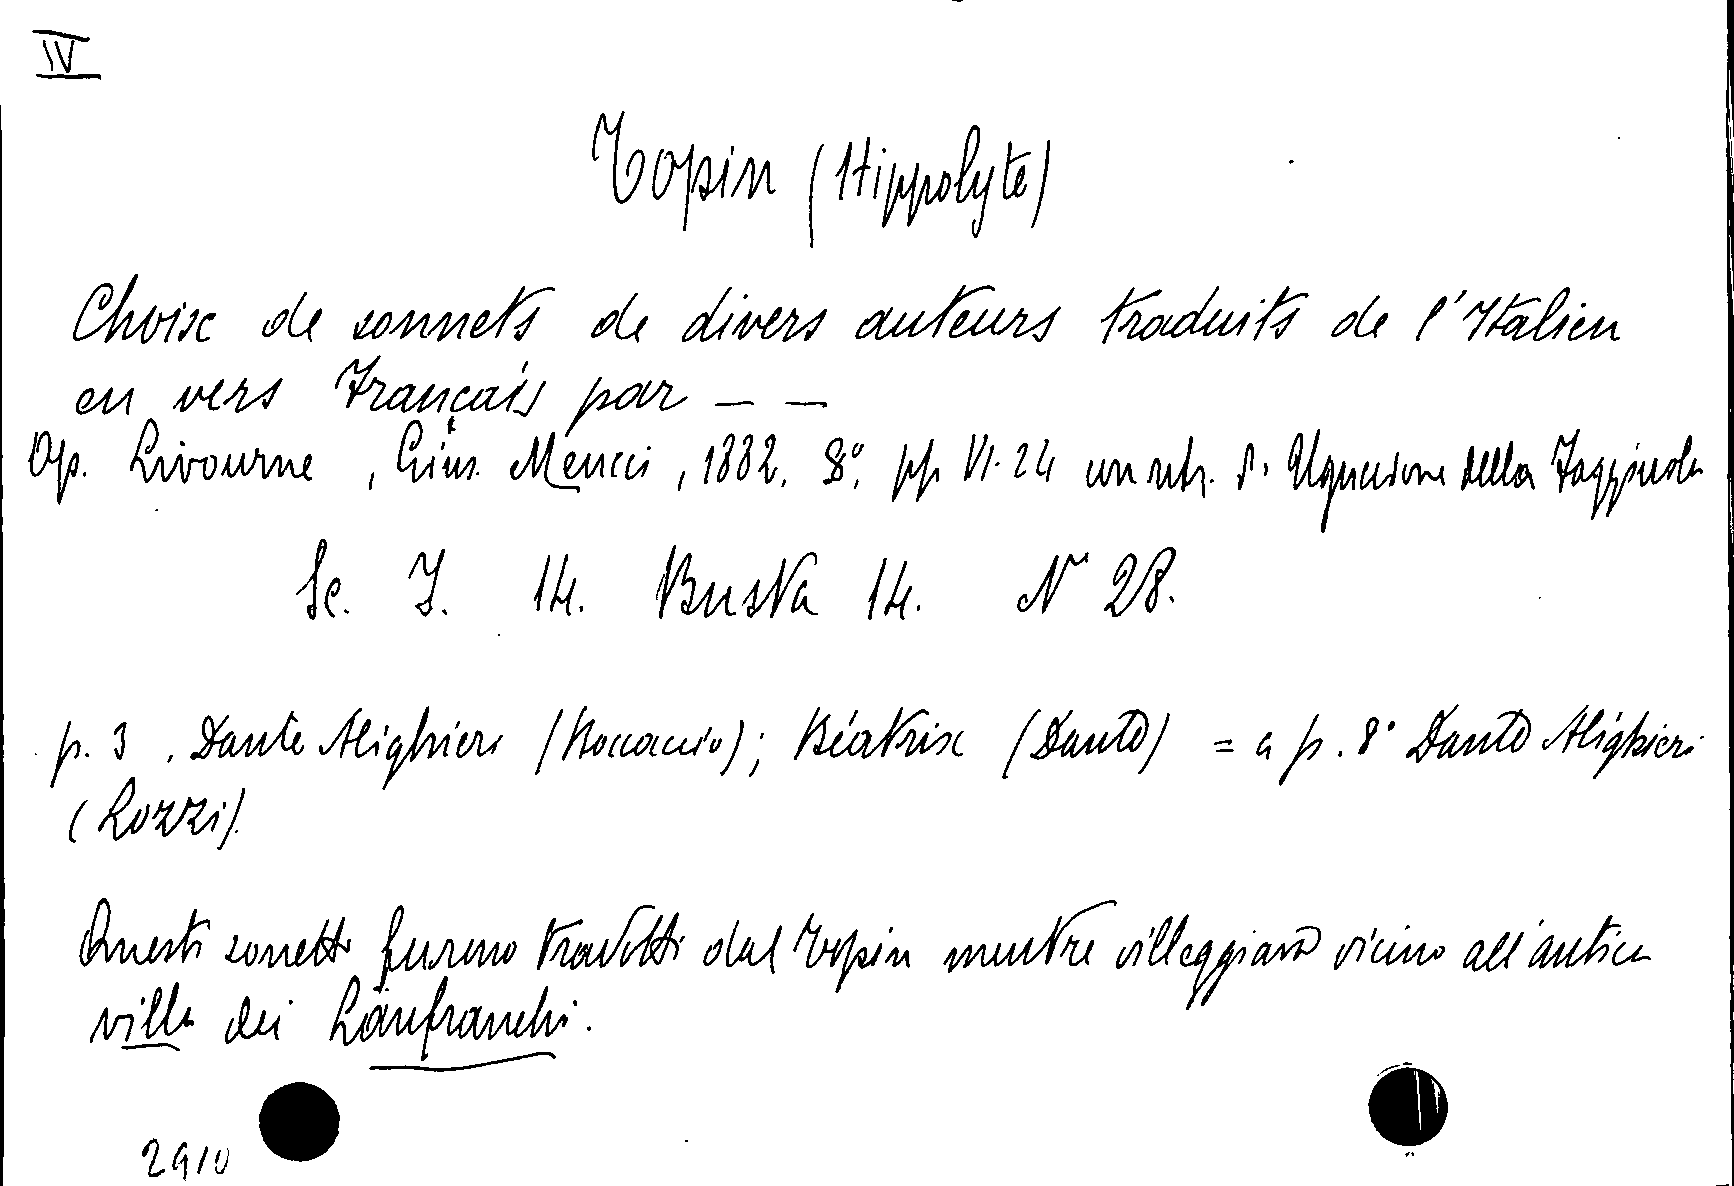 IV
Topin (Hippolyte)
Choix de sonnets de divers auteurs traduits de l'Italien
en vers Français par — —
Op. Livourne, Gius. Meucci, 1882. 8°. pp VI. 24 con ritr. d. Uguccione della Faggiuola
Sc. I. 14. Busta 14. N° 28.
p. 3. Dante Alighieri (Boccaccio); Béatrix (Dante) = a p. 8° Dante Alighieri
(Lozzi).
Questi sonetti furono tradotti dal Topin mentre villeggiava vicino all'antica
villa dei Lanfranchi.
2910